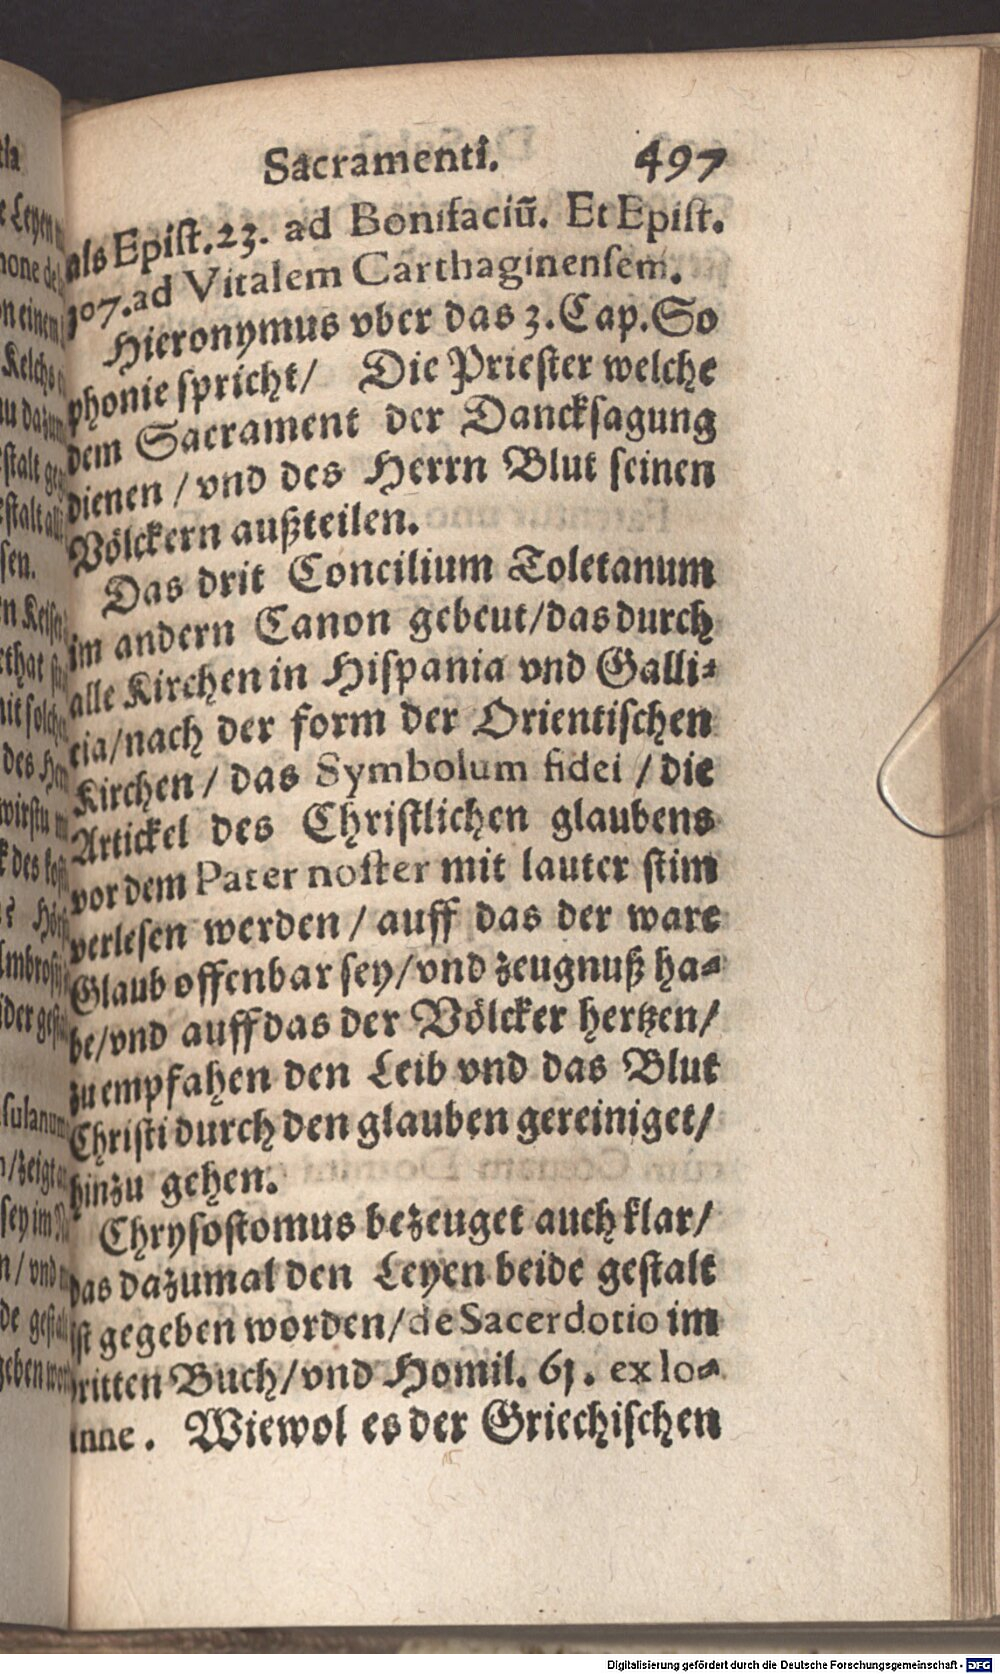 Sacramenti. 497
als Epist.23. ad Bonifaciũ. Et Epist.
107.ad Vitalem Carthaginensem.
Hieronymus vber das 3.Cap.So
phonie spricht/ Die Priester welche
dem Sacrament der Dancksagung
dienen / vnd des Herrn Blut seinen
Völckern außteilen.
Das drit Concilium Toletanum
im andern Canon gebeut/das durch
alle Kirchen in Hispania vnd Galli⸗
cia/nach der form der Orientischen
Kirchen / das Symbolum fidei / die
Artickel des Christlichen glaubens
vor dem Pater noster mit lauter stim
verlesen werden / auff das der ware
Glaub offenbar sey/vnd zeugnuß ha⸗
be/vnd auff das der Völcker hertzen/
zu empfahen den Leib vnd das Blut
Christi durch den glauben gereiniget/
hinzu gehen.
Chrysostomus bezeuget auch klar/
das dazumal den Leyen beide gestalt
ist gegeben worden/de Sacerdotio im
dritten Buch/vnd Homil. 61. ex Io⸗
anne. Wiewol es der Griechischen
Digitalisierung gefördert durch die Deutsche Forschungsgemeinschaft - DFG